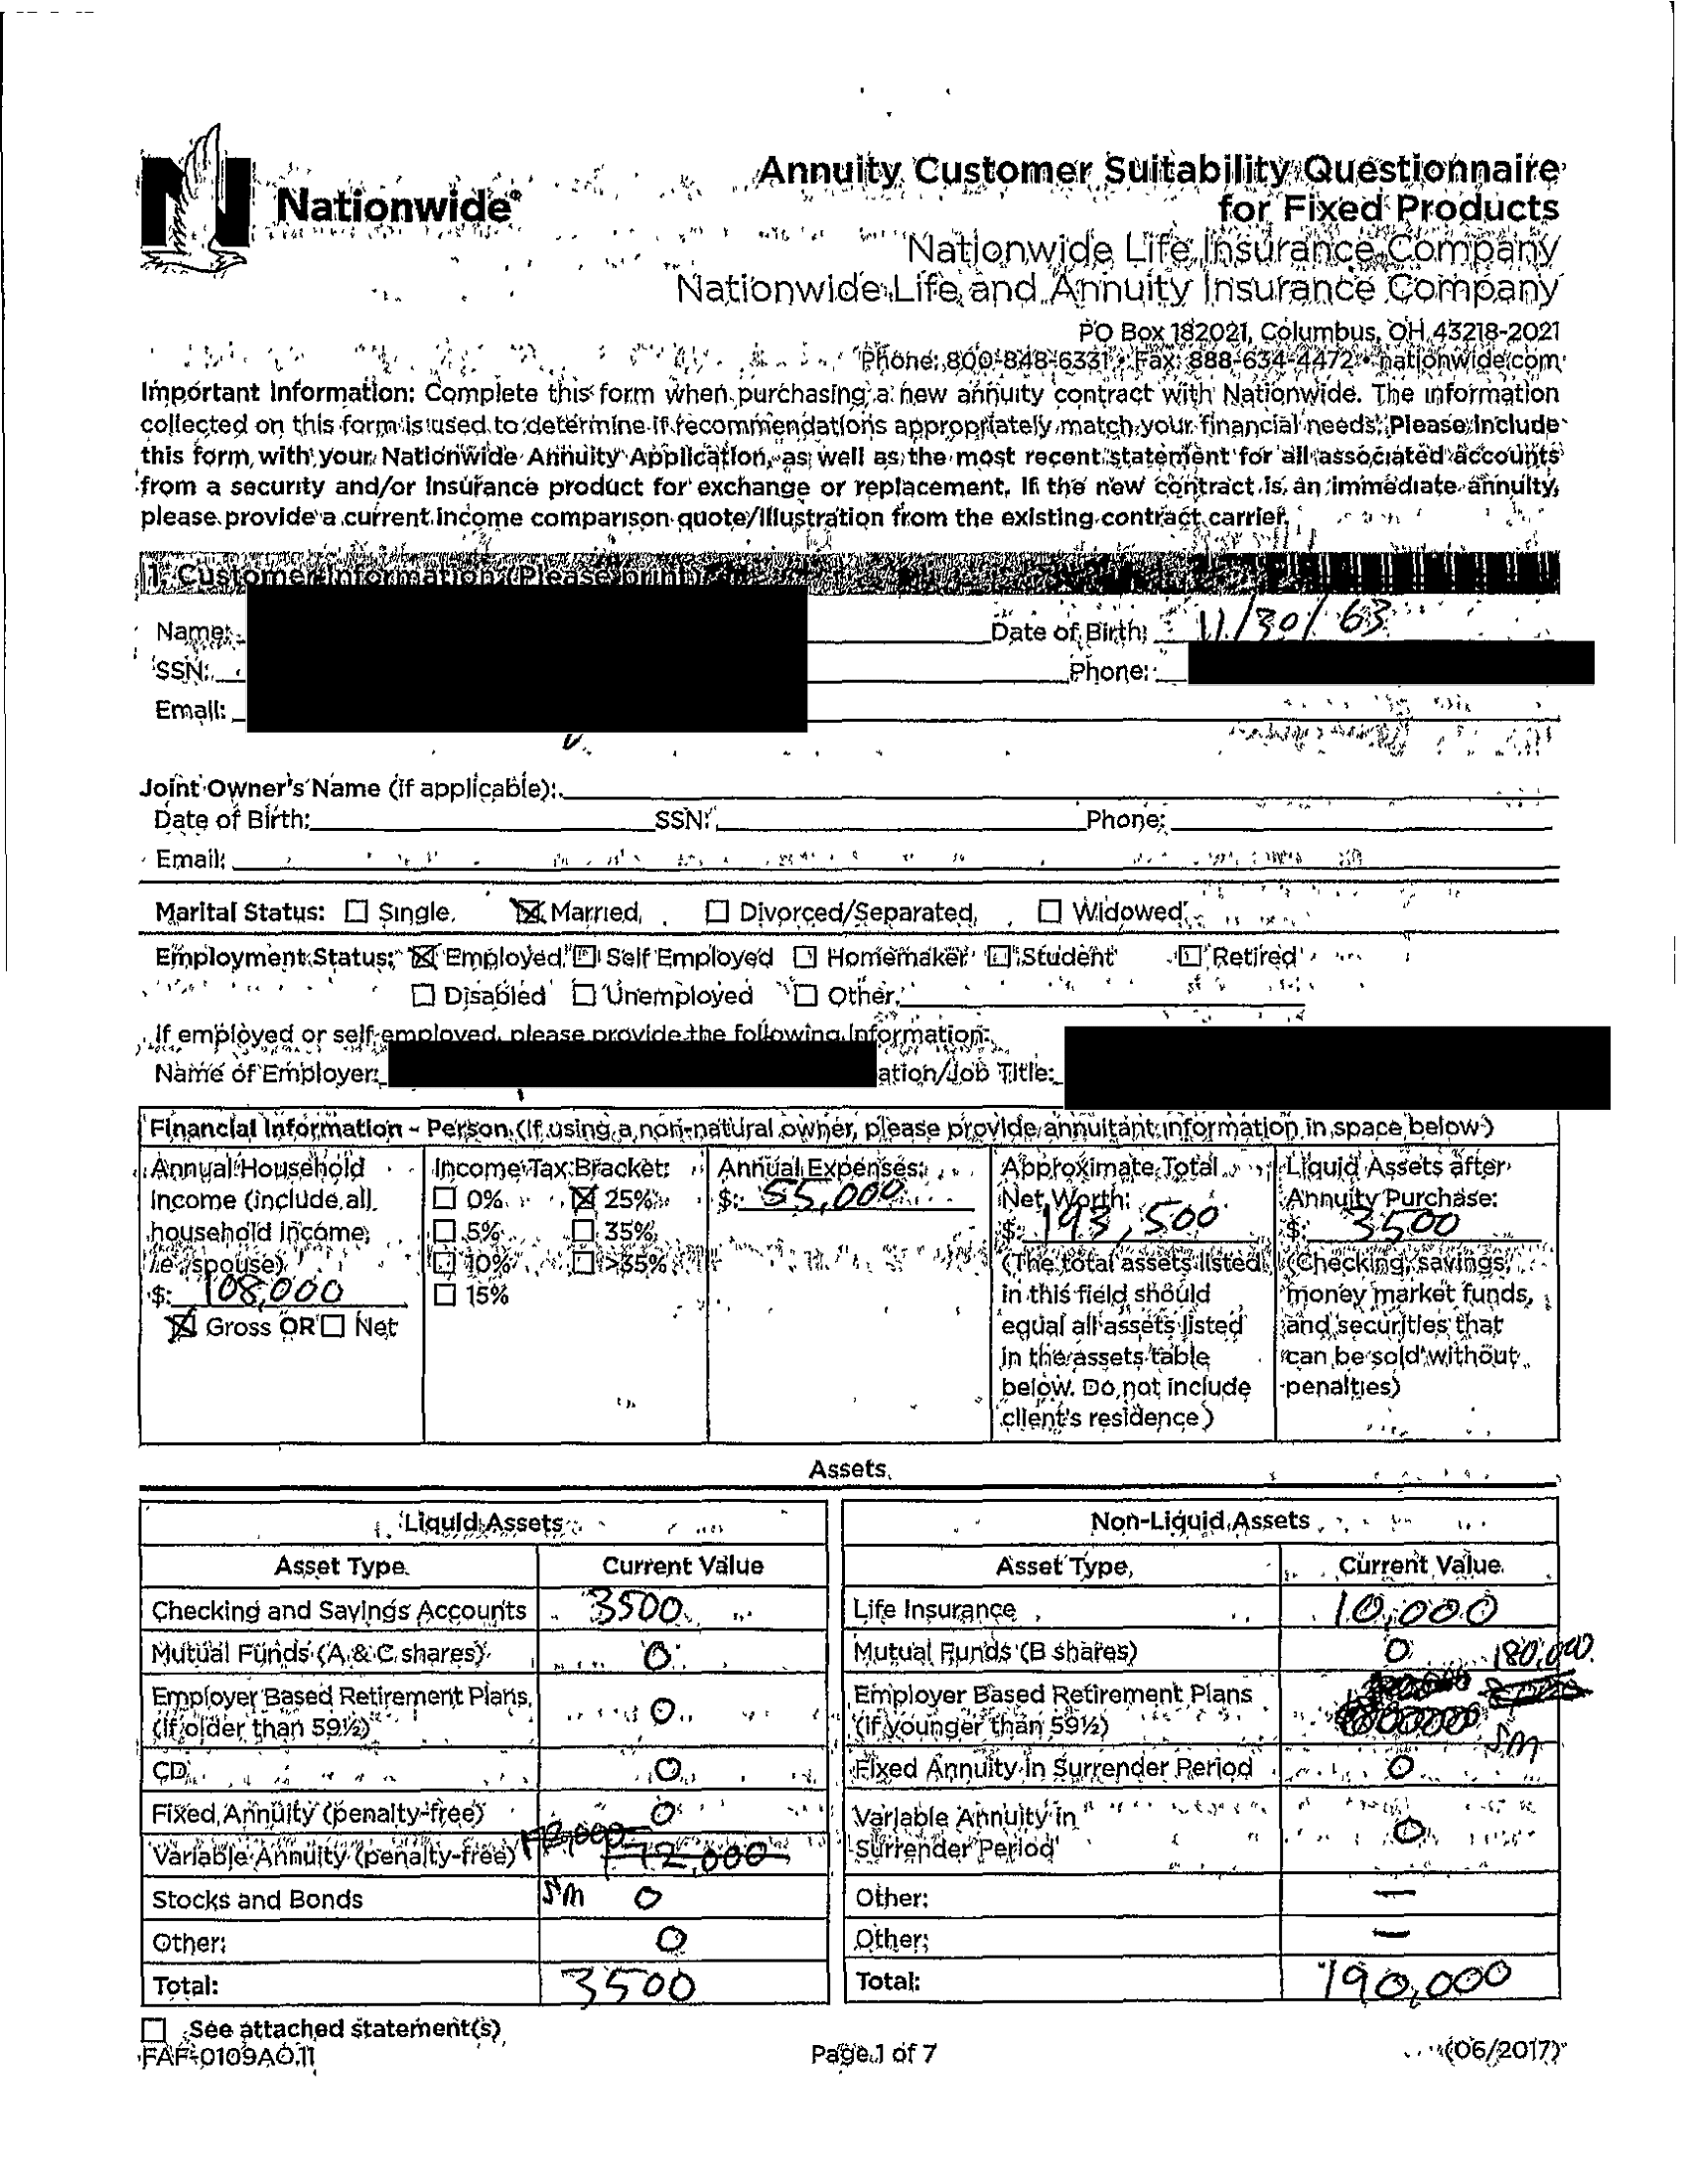 Nationwide®
Annuity Customer Suitability Questionnaire
for Fixed Products
Nationwide Life Insurance Company
Nationwide Life and Annuity Insurance Company
PO Box 182021, Columbus, OH 43218-2021
Phone: 800-848-6331 • Fax: 888-634-4472 • nationwide.com
Important Information: Complete this form when purchasing a new annuity contract with Nationwide. The information
collected on this form is used to determine if recommendations appropriately match your financial needs. Please include
this form, with your Nationwide Annuity Application, as well as the most recent statement for all associated accounts
from a security and/or insurance product for exchange or replacement. If the new contract is an immediate annuity,
please provide a current income comparison quote/illustration from the existing contract carrier.
1. Customer Information (Please print)
Name: Date of Birth: 11/30/63
SSN: Phone:
Email:
Joint Owner's Name (if applicable):
Date of Birth: SSN: Phone:
Email:
Marital Status: ☐ Single ☒ Married ☐ Divorced/Separated ☐ Widowed
Employment Status: ☒ Employed ☐ Self Employed ☐ Homemaker ☐ Student ☐ Retired
☐ Disabled ☐ Unemployed ☐ Other
If employed or self-employed, please provide the following information:
Name of Employer: ation/Job Title:
Financial Information - Person (If using a non-natural owner, please provide annuitant information in space below)
Annual Household
Income (include all
household income,
ie. spouse)
$: 108,000
☒ Gross OR ☐ Net
Income Tax Bracket:
☐ 0% ☒ 25%
☐ 5% ☐ 35%
☐ 10% ☐ >35%
☐ 15%
Annual Expenses:
$: 55,000
Approximate Total
Net Worth:
$: 193,500
(The total assets listed
in this field should
equal all assets listed
in the assets table
below. Do not include
client's residence)
Liquid Assets after
Annuity Purchase:
$: 3500
(Checking, savings,
money market funds,
and securities that
can be sold without
penalties)
Assets
Liquid Assets
Asset Type Current Value
Checking and Savings Accounts 3500
Mutual Funds (A & C shares) 0
Employer Based Retirement Plans
(If older than 59½) 0
CD 0
Fixed Annuity (penalty-free) 0
Variable Annuity (penalty-free) 172,000
Stocks and Bonds SM 0
Other: 0
Total: 3500
Non-Liquid Assets
Asset Type Current Value
Life Insurance 10,000
Mutual Funds (B shares) 0
Employer Based Retirement Plans
(If younger than 59½) 180,000 SM
Fixed Annuity in Surrender Period 0
Variable Annuity in
Surrender Period 0
Other: —
Other: —
Total: 190,000
☐ See attached statement(s)
FAF-0109AO.11 Page 1 of 7 (06/2017)